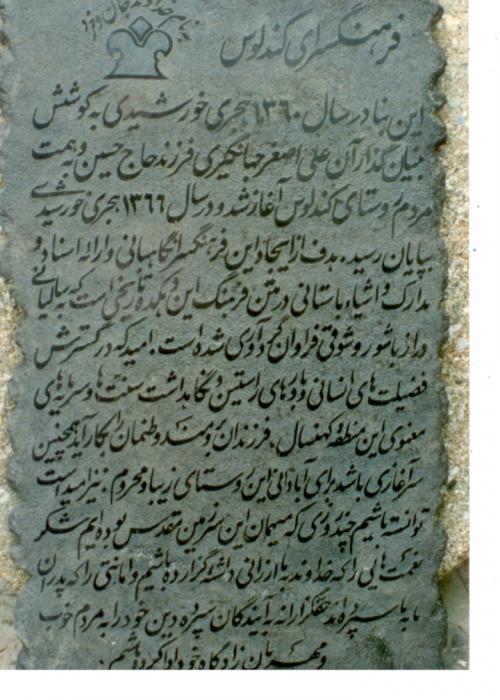 بنام خداوند جان و خرد
فرهنگسرای کندلوس
این بنا در سال ۱۳۶۰ هجری خورشیدی به کوشش
بنیان گذار آن علی اصغر جهانگیری فرزند حاج حسین و به همت
مردم روستای کندلوس آغاز شد و در سال ۱۳۶۶ هجری خورشیدی
بپایان رسید. هدف از ایجاد این فرهنگسرا نگاهبانی و ارائه اسناد و
مدارک و اشیاء باستانی در متن فرهنگ این دهکده تاریخی است که سالیانی
دراز با شور و شوقی فراوان گردآوری شده است. امید که در گسترش
فضیلت های انسانی و باورهای راستین و نگاهداشت سنت ها و سرمایه های
معنوی این منطقه کهنسال، فرزندان برومند وطنمان را بکار آید همچنین
سرآغازی باشد برای آبادانی این روستای زیبا و محروم. نیز امید است
توانسته باشیم چند روزی که میهمان این سرزمین مقدس بوده ایم شکر
نعمت هایی را که خداوند به ما ارزانی داشته گزارده باشیم و امانتی را که پدران
ما به ما سپرده اند حقگزارانه به آیندگان سپرده دین خود را به مردم خوب
و مهربان زادگاه خود ادا کرده باشیم.